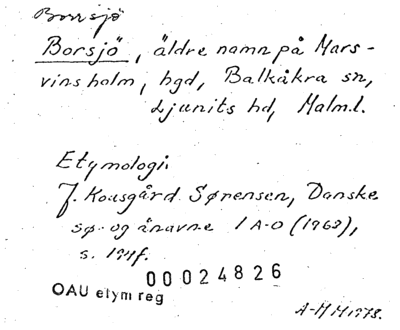 Borrsjö
Borsjö, äldre namn på Mars-
vinsholm, hgd, Balkåkra sn,
Ljunits hd, Malm.l.
Etymologi:
J. Kousgård Sørensen, Danske
sø- og ånavne 1 A-O (1968),
s.
00024826
OAU etym reg
A-M M 1978.